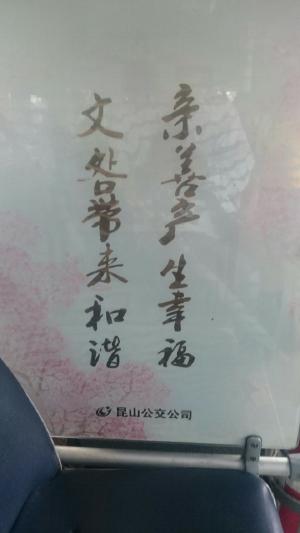 亲善产生幸福
文明带来和谐
昆山公交公司